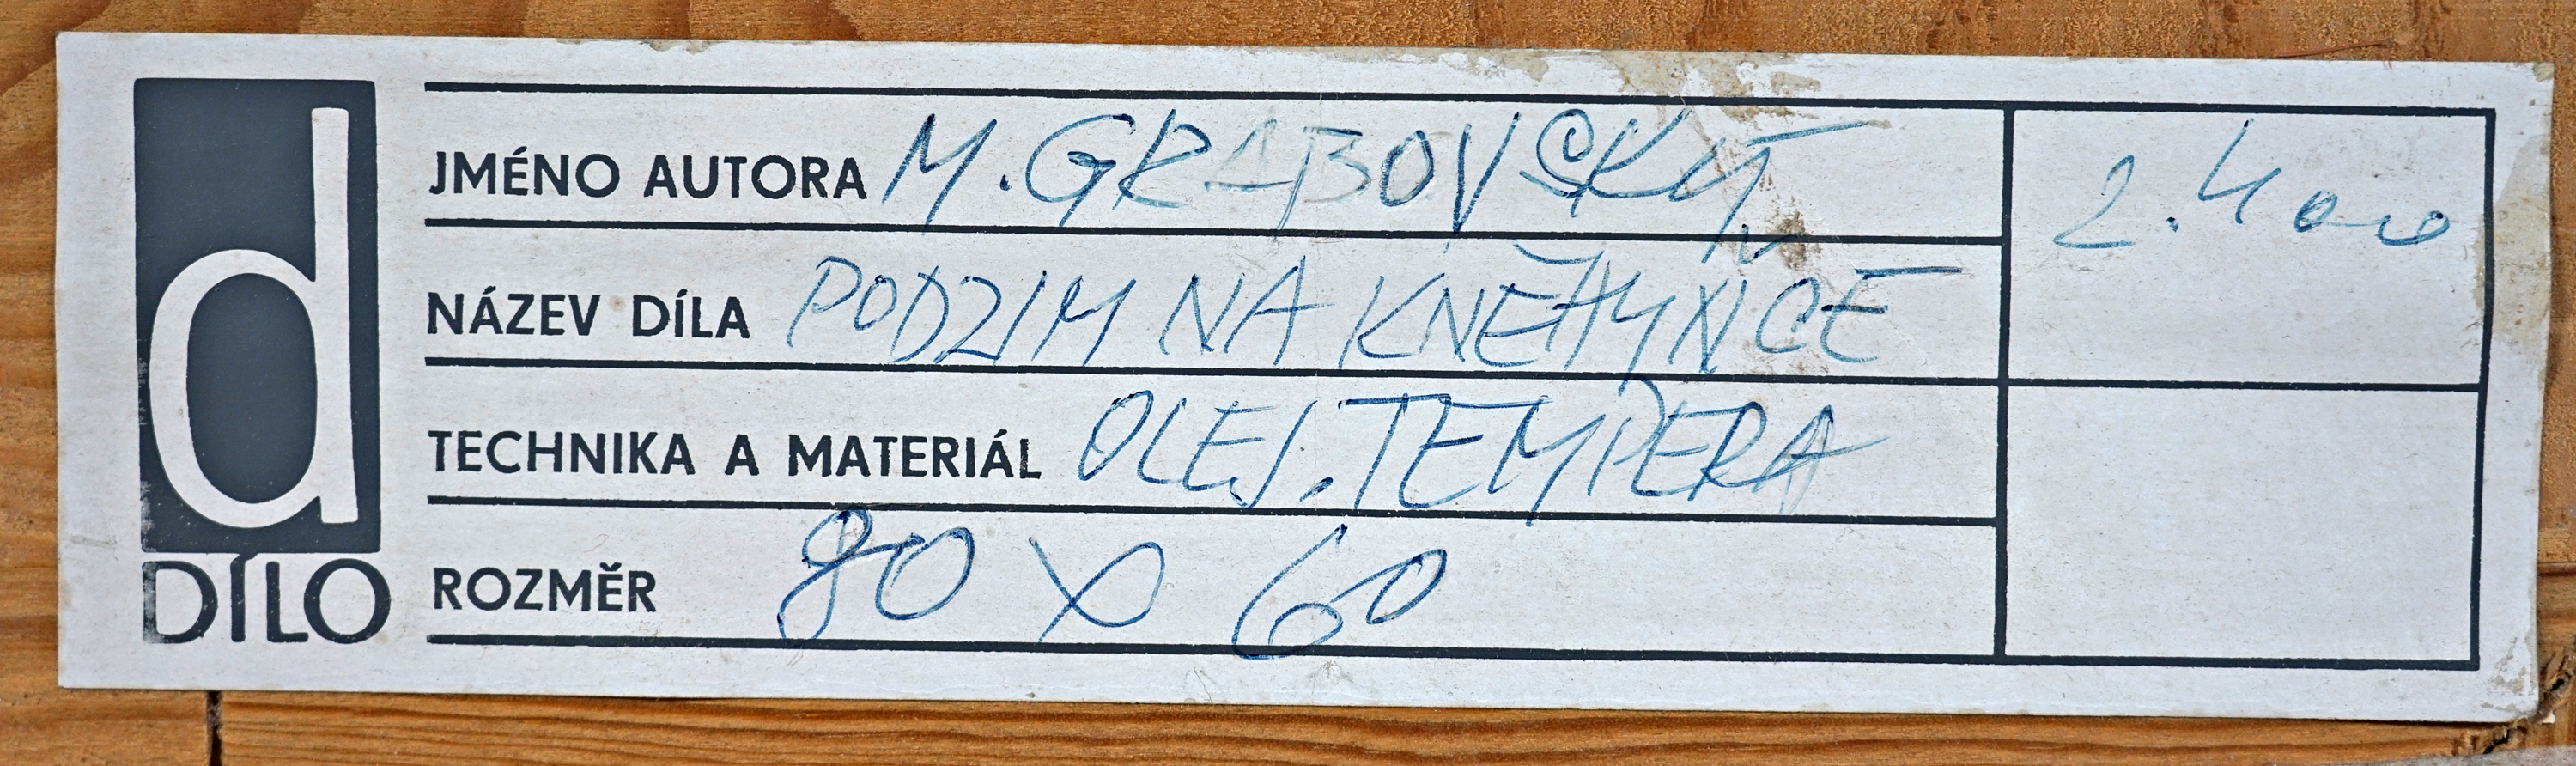 d
DÍLO
JMÉNO AUTORA M. GRABOVSKÝ
NÁZEV DÍLA PODZIM NA KNĚHYŇCE
TECHNIKA A MATERIÁL OLEJ. TEMPERA
ROZMĚR 80 x 60
2.400